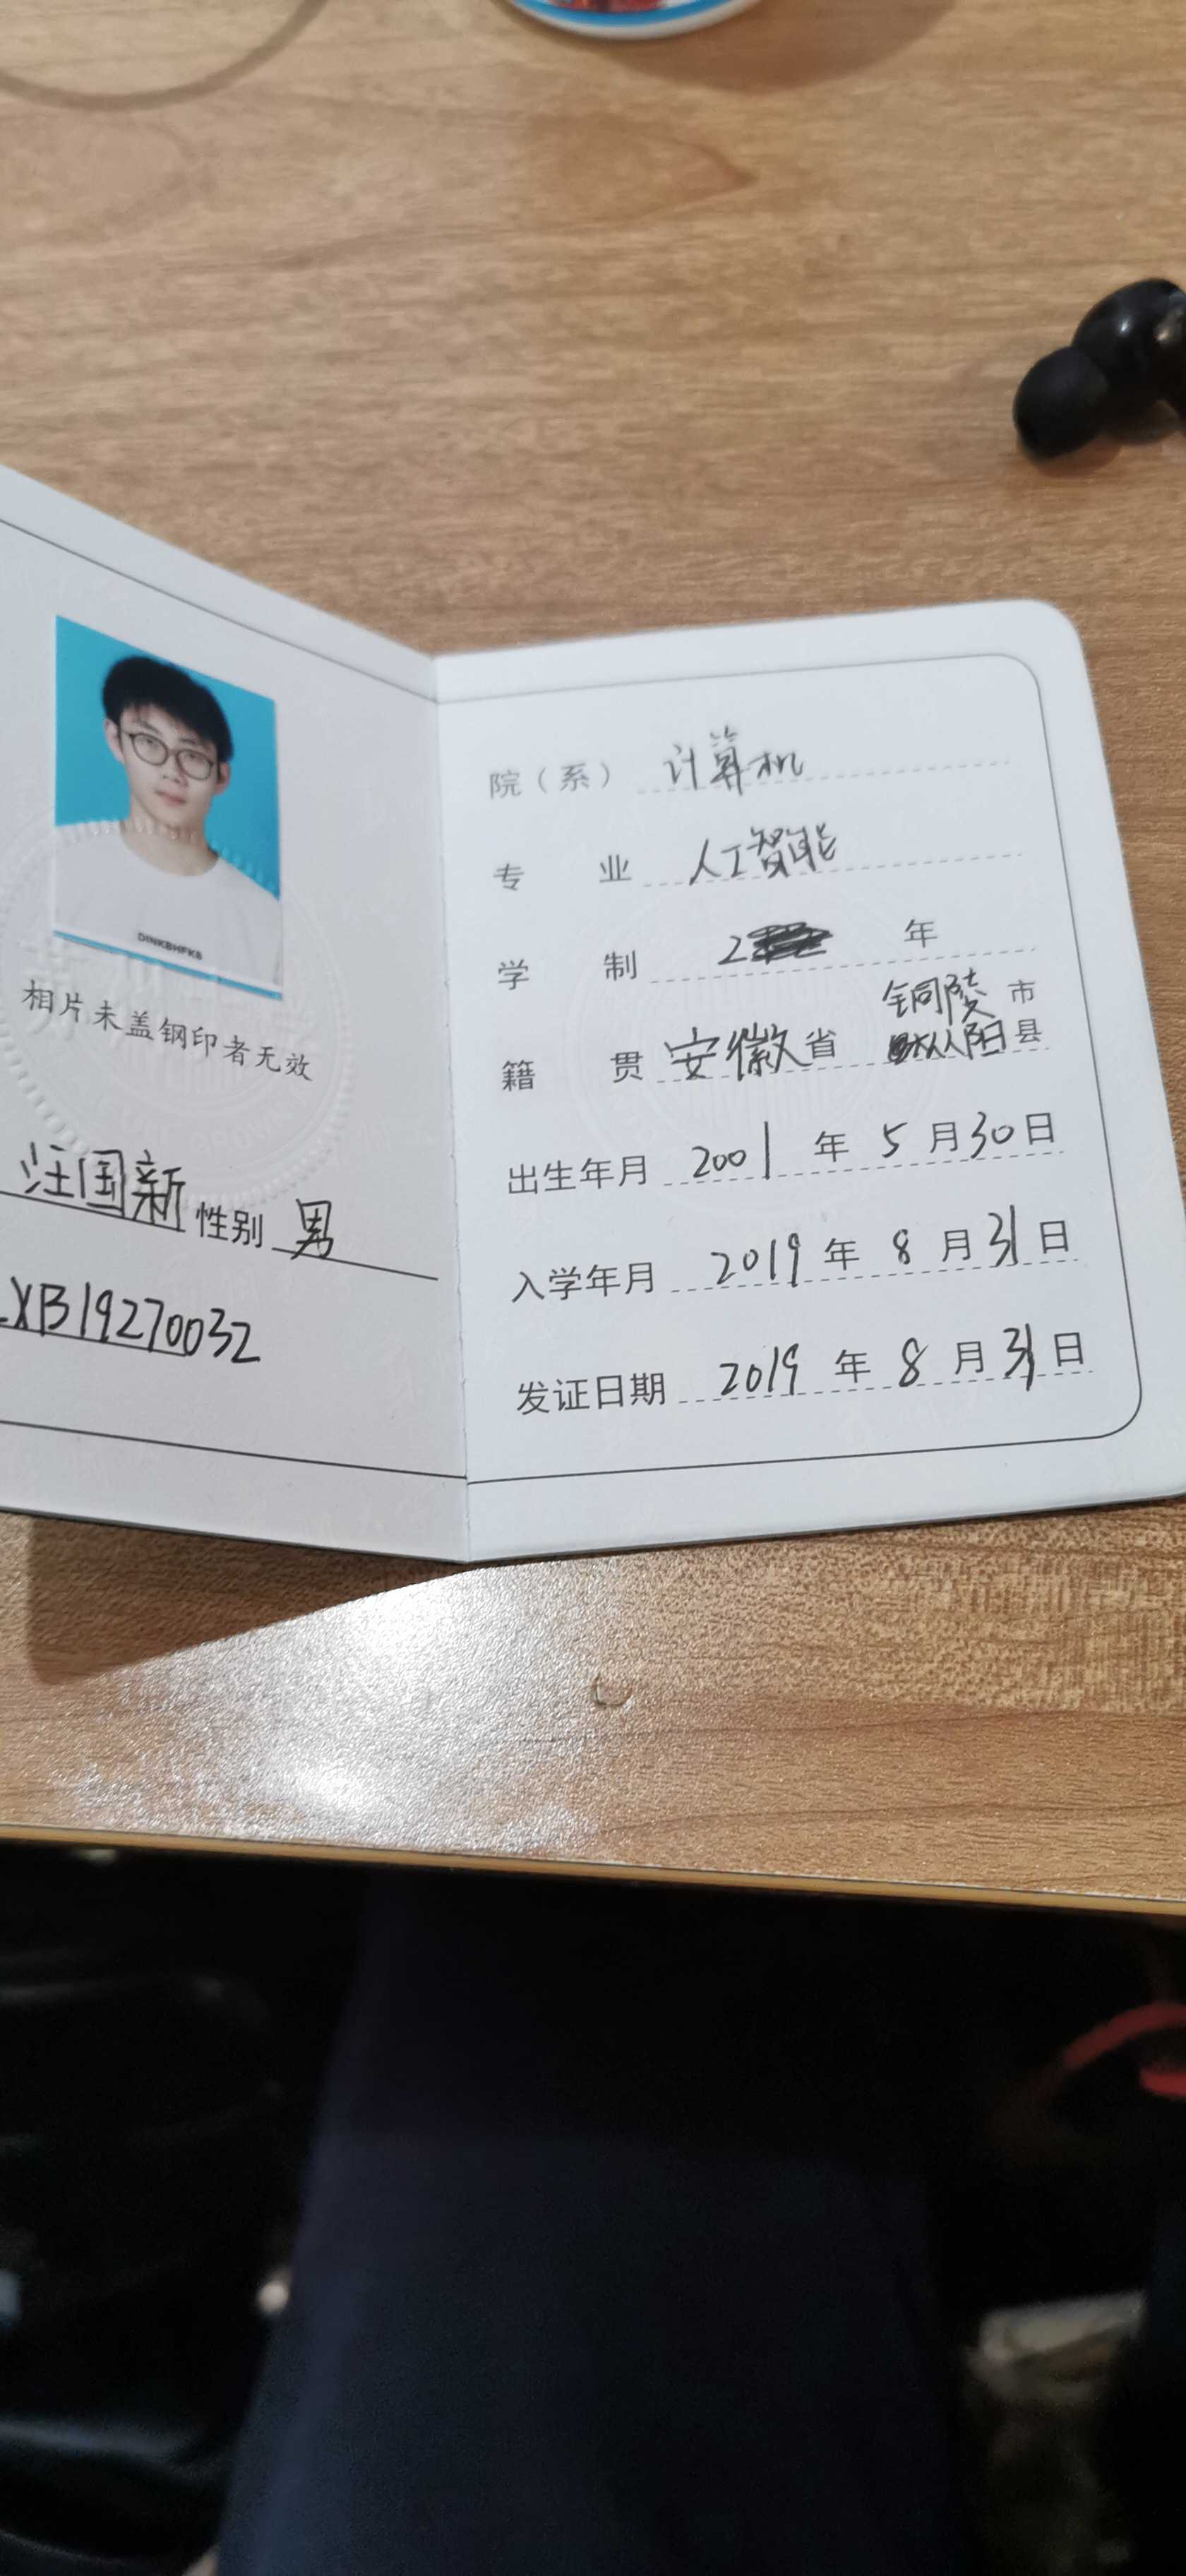 DINKBHFKB
相片未盖钢印者无效
汪国新 性别 男
XB19270032
院（系） 计算机
专 业 人工智能
学 制 2 年
铜陵 市
籍 贯 安徽 省 枞阳 县
出生年月 2001 年 5 月 30 日
入学年月 2019 年 8 月 31 日
发证日期 2019 年 8 月 31 日